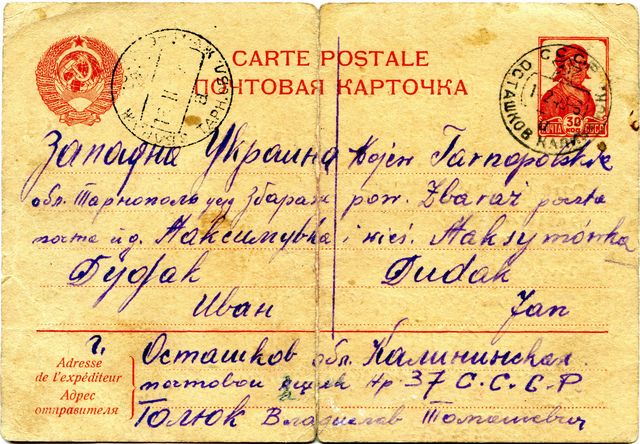 CARTE POSTALE
ПОЧТОВАЯ КАРТОЧКА
ПОЧТА 30 КОП. СССР
С.С.С.Р.
ОСТАШКОВ КАЛИН
Западна Украина
обл. Тарнополь уезд Збараж
почта и д. Максимувка
Дудак
Иван
Wojew Tarnopolskie
pow. Zbaraż poczta
i wieś. Maksymówka
Dudak
Jan
Adresse
de l'expéditeur
Адрес
отправителя
г. Осташков обл. Калининская
почтовой ящик Нр 37 С.С.С.Р
Голюк Владислав Томашевич